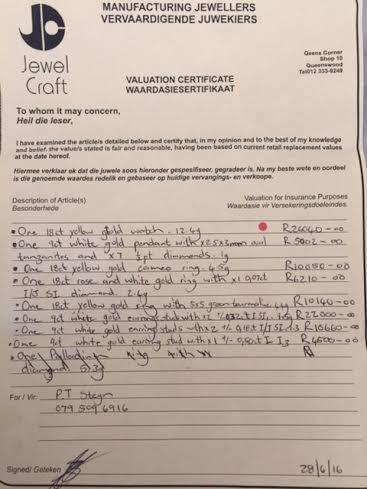 MANUFACTURING JEWELLERS
VERVAARDIGENDE JUWEKIERS
Jewel
Craft
Qeens Corner
Shop 10
Queenswood
Tel012 333-9249
VALUATION CERTIFICATE
WAARDASIESERTIFIKAAT
To whom it may concern,
Heil die leser,
I have examined the article/s detailed below and certify that, in my opinion and to the best of my knowledge
and belief, the value/s stated is fair and reasonable, having been based on current retail replacement values
at the date hereof.
Hiermee verklaar ek dat die juwele soos hieronder gespesifiseer, gegradeer is. Na my beste wete en oordeel
is die genoemde waardes redelik en gebaseer op huidige vervangings- en verkoope.
Description of Article(s)
Besonderhede
Valuation for Insurance Purposes
Waardasie vir Versekeringsdoeleindes.
One 18ct yellow gold watch - 13.6g R26040-00
One 9ct white gold pendant with x2 5x3mm oval R5002-00
tanzanites and x7 3pt diamonds. 1g
One 18ct yellow gold cameo ring 6.5g R10050-00
One 18ct rose and white gold ring with x1 R6210-00
SI diamond 2.6g
One 18ct yellow gold ring with 5x5 green tourmaline R10140-00
One 9ct white gold earring stud with x2 R22000-00
One 9ct white gold earring studs with x2 R10660-00
One 9ct white gold earring stud with x1 R4500-00
One Palladium with
diamond
For / Vir: P.T Steyn
079 509 6916
Signed/ Geteken
28/6/16